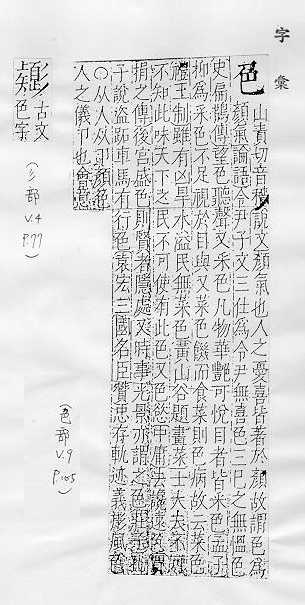 字彙
色
山責切音嗇說文顏氣也人之憂喜皆著於顏故謂色爲
顏氣論語令尹子文三仕爲令尹無喜色三已之無慍色
史扁鵲傳望色聽聲又采色凡物華艷可悅目者皆采色孟子
抑爲采色不足視於目與又菜色饑而食菜則色病故云菜色
禮王制雖有凶旱水溢民無菜色黃山谷題畫菜士大夫不可
不知此味天下之民不可使有此色又色慾中庸去讒遠色
揖之傳後宮盛色則賢者隱處又時事光景亦謂之色莊
子說盜跖車馬有行色袁宏三國名臣贊忠存軌迹義形風色
〇从人从卪顏色
人之儀卪也會意
古文
色字
(彡部
V.4
P.77)
(色部
V.9
P.105)